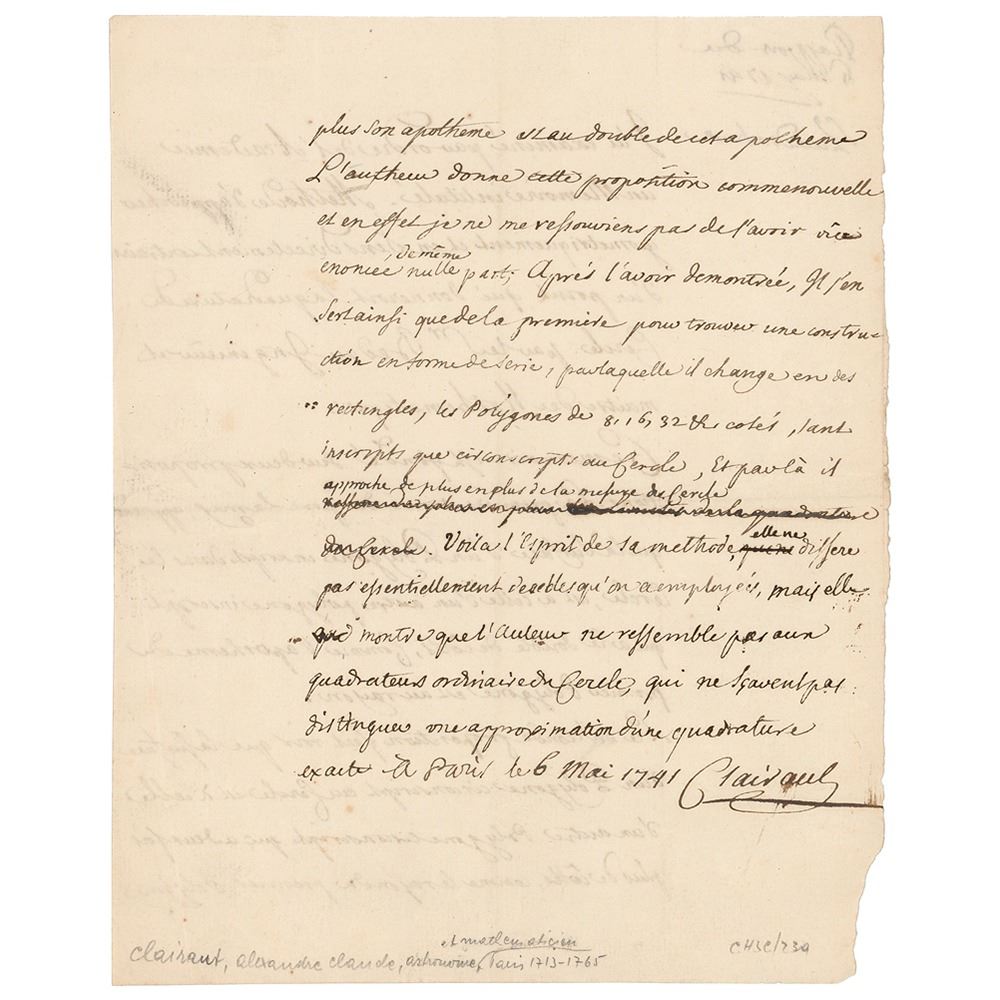 plus son apotheme est au double de cet apotheme
L'autheur donne cette proposition comme nouvelle
et en effet je ne me ressouviens pas de l'avoir vüe
de même
enoncée nulle part; Aprés l'avoir demontrée, Il s'en
sert ainsi que de la premiére pour trouver une constru-
ction en forme de serie, par laquelle il change en des
rectangles, les Polygones de 8, 16, 32 &c cotés, tant
inscripts que circonscripts au Cercle, Et par là il
approche de plus en plus de la mesure du Cercle
de la quadrature
du Cercle. Voila l'Esprit de sa methode, qui ne elle ne differe
pas essentiellement de celles qu'on a employées, mais elle
que montre que l'Auteur ne ressemble pas aux
quadrateurs ordinaires du Cercle, qui ne sçavent pas
distinguer une approximation d'une quadrature
exacte A Paris le 6 Mai 1741 Clairaut
et mathematicien
Clairaut, alexandre claude, astronome, Paris 1713-1765